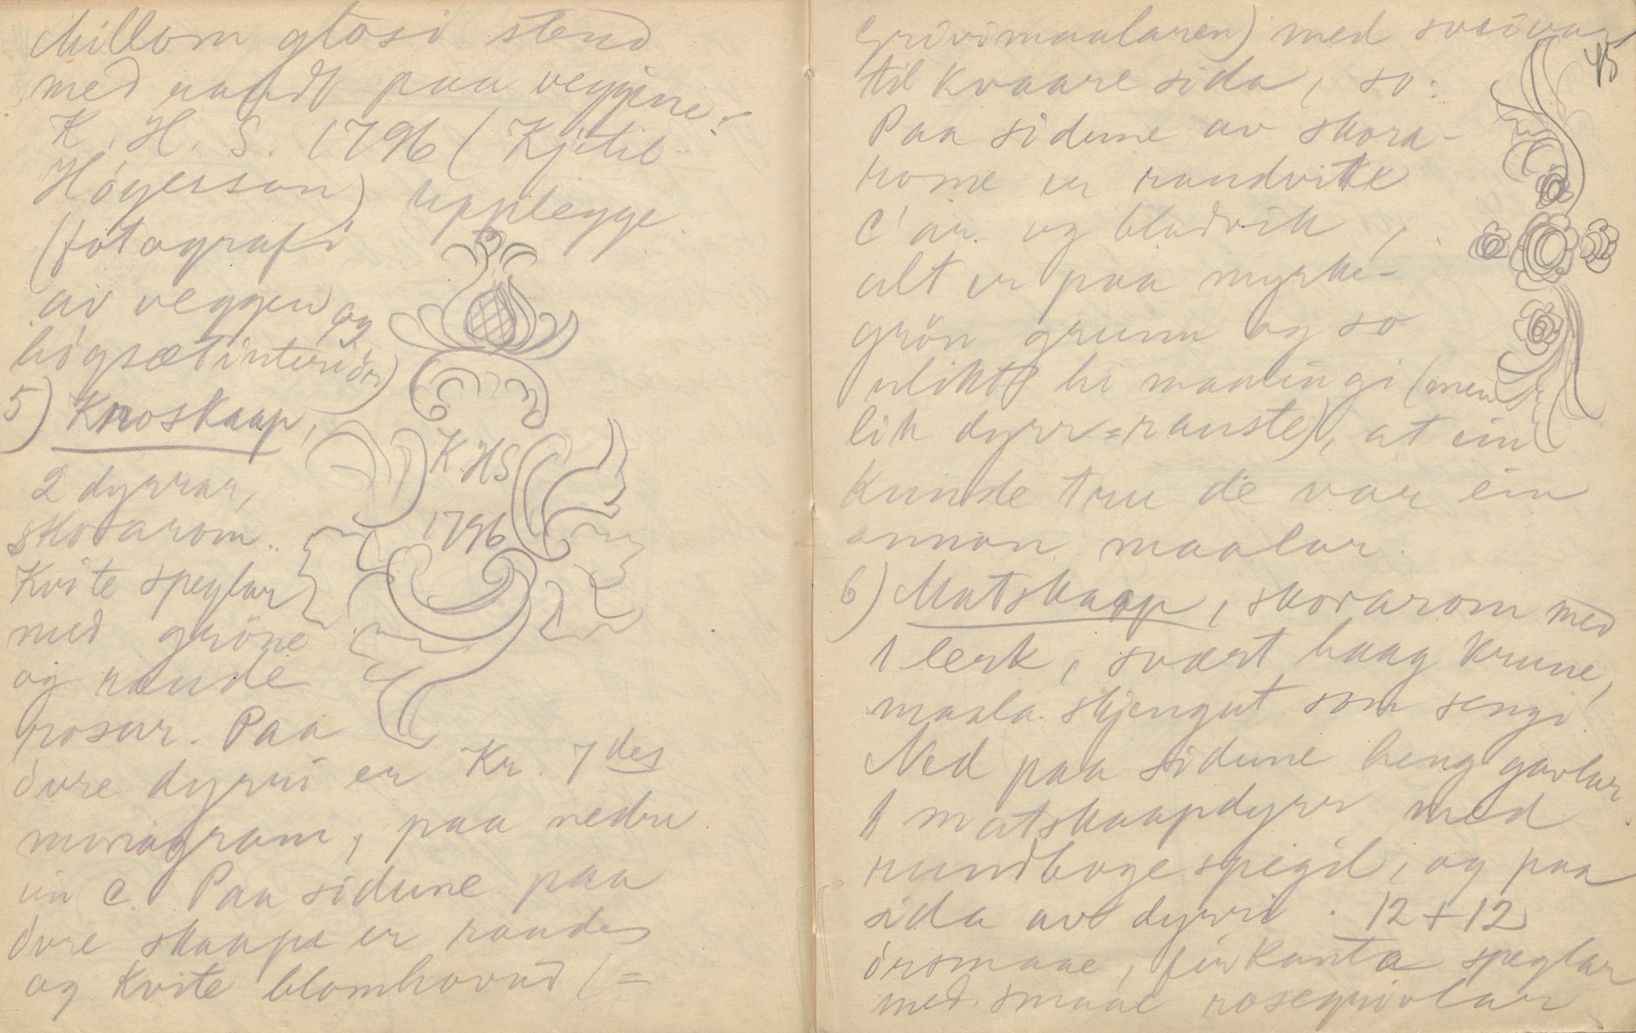 Millom glosi stend
med raudt paa veggine:
K. H. S. 1796 (Kjetil
Høgesson) upplegge
(fotografi
av veggen og
høgsætinteriør)
K HS
1796
5) Kroskaap,
2 dyrrar,
skorarom.
Kvite speglar
med grøne
og raude
rosur. Paa
øvre dyrri er Kr. 7des
monogram, paa nedre
ein C. Paa sidune paa
øvre skaape er raude
og kvite blomhovud (=
45
Grivimaalaren) med sveivar
til kvaare sida, so:
Paa sidune av skora-
rome er raudvite
C'ar og bladverk,
alt er paa myrke-
grøn grunn og so
ulikt hi maalingi (men
lik dyrr=rauste), at ein
kunde tru de var ein
annan maalar.
6) Matskaap, skorarom med
1 lerk, svært haag krune,
maala skjengut som sengi
Ned paa sidune heng gavlar
1 matskaapdyrr med
rundboge spegil, og paa
sida av dyrri. 12 + 12
ørsmaae, firkanta speglar
med smaae rosegrivlar